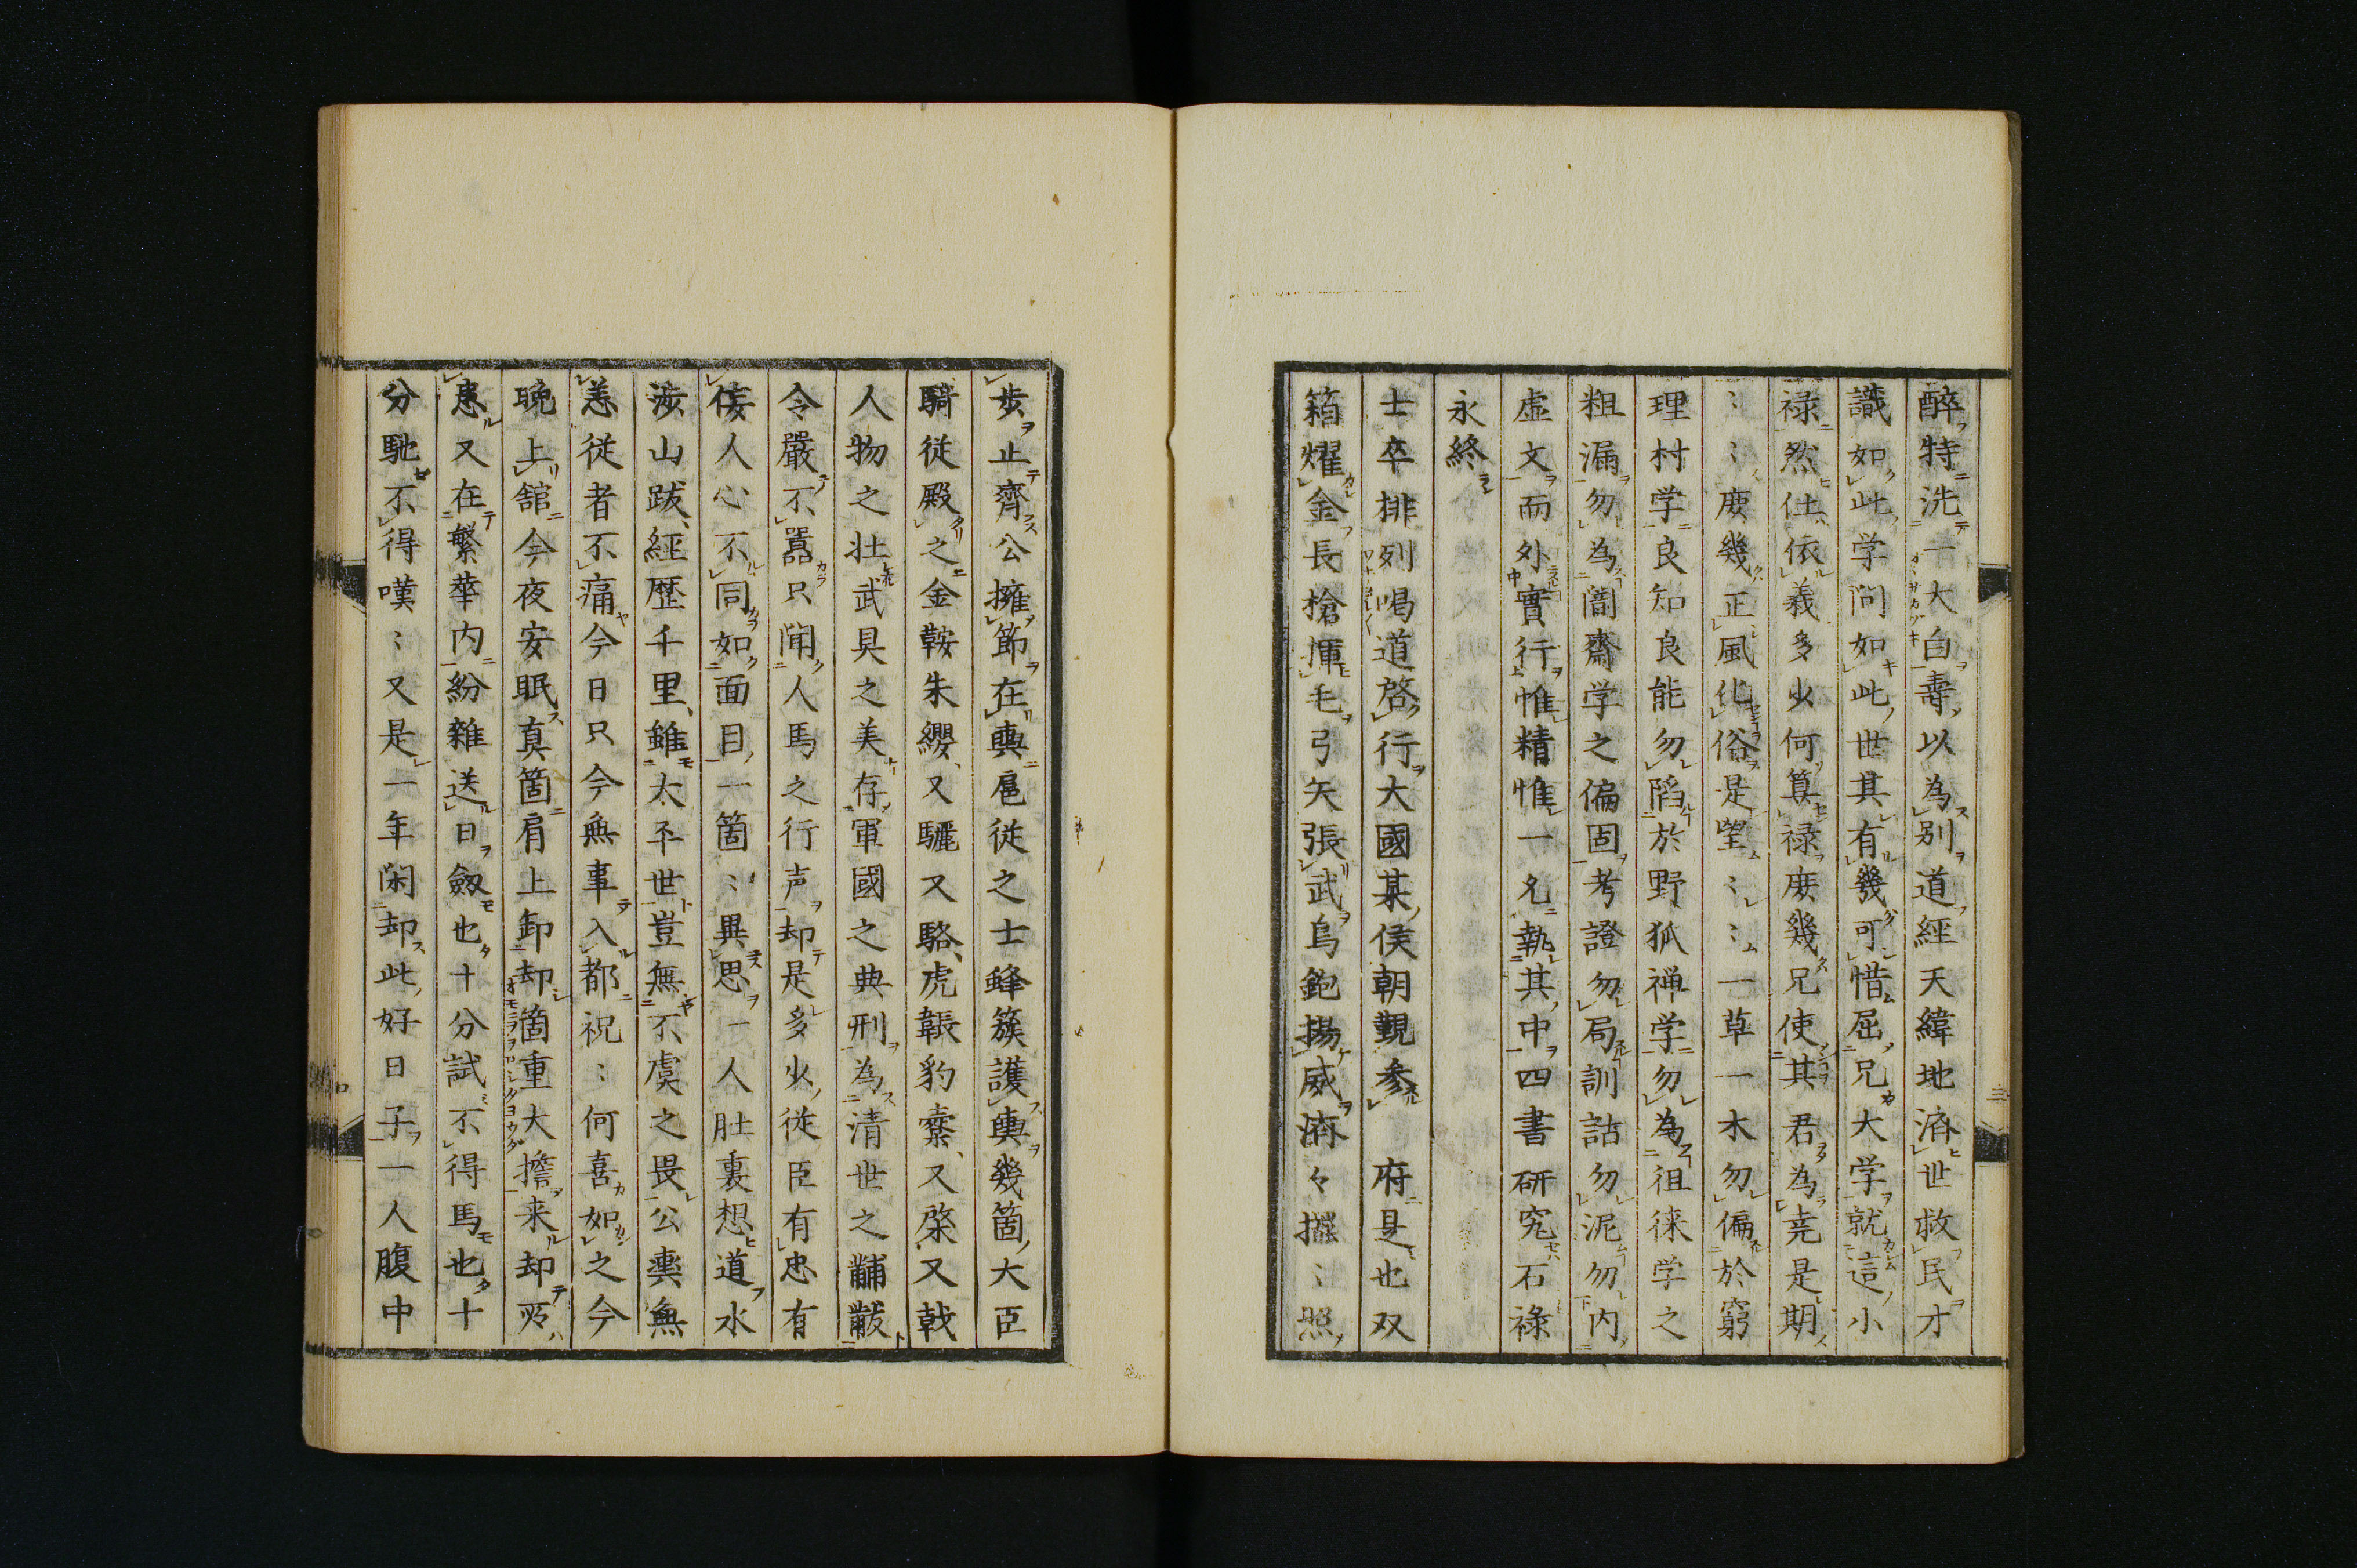 醉特洗一大白壽以為別道經天緯地済世救民才
識如此学問如此世其有幾可惜屈兄大学就這小
禄然仕依義多少何算禄庶幾兄使其君為尭是期
〻〻庶幾正風化俗是望〻〻一草一木勿偏於窮
理村学良知良能勿陷於野狐禅学勿為徂徠学之
粗漏勿為闇齋学之偏固考證勿局訓詁勿泥勿内
虚文而外實行惟精惟一允執其中四書研究石禄
永終
士卒排列喝道啓行大國某侯朝覲参府是也双
箱燿金長槍揮毛弓矢張武鳥銃揚威済々擺〻照
歩止齊公擁節在輿扈従之士蜂簇護輿幾箇大臣
騎従殿之金鞍朱纓又驪又駱虎韔豹櫜又棨又戟
人物之壮武具之美存軍國之典刑為清世之黼黻
令嚴不囂只聞人馬之行声却是多少従臣有忠有
侫人心不同如面目一箇〻異思一人肚裏想道水
渉山跋經歴千里雖太平世豈無不虞之畏公輿無
恙従者不痛今日只今無事入都祝〻何喜如之今
晩上舘今夜安眠真箇肩上卸却箇重大擔来却所
患又在繁華内紛雑送日劔也十分試不得馬也十
分馳不得嘆〻又是一年閑却此好日子一人腹中